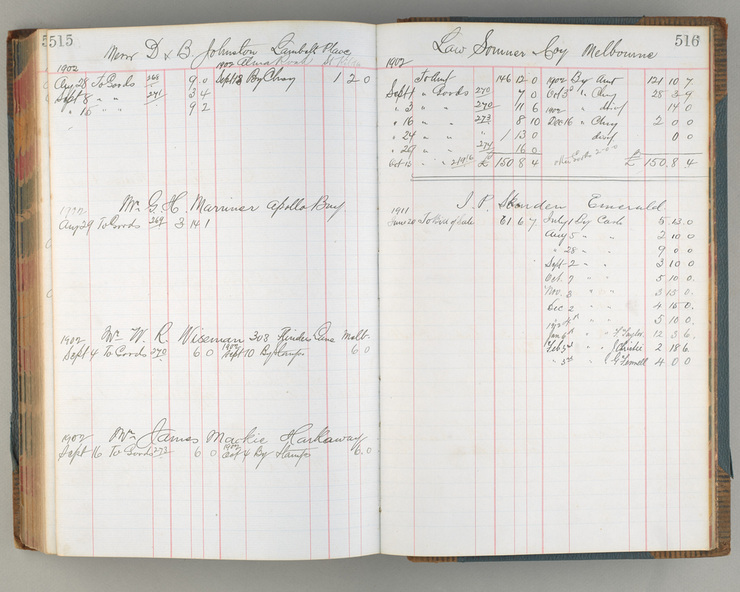 515
Messrs D & B Johnston Lambeth Place
1902 1902 Alma Road St Kilda
Aug 28 To Goods 268 9 0 Sept 18 By Chq 1 2 0
Sept 8 " " 271 3 4
" 16 " " 9 2
Mr G. H. Marriner Apollo Bay
Aug 29 To Goods 269 3 14 1
1902 Mr W. R. Wiseman 308 Flinders Lane Melb.
Sept 4 To Goods 270 6 0 1902 Sept 10 By Stamps 6 0
1902 Mr James Mackie Harkaway
Sept 16 To Goods 272 6 0 1902 Oct 4 By Stamps 6 0
516
Law Somner & Coy Melbourne
1902
To Amt 146 12 0 1902 By Amt 121 10 7
Sept 1 " Goods 270 7 0 Oct 3 " Chq 28 3 9
" 3 " " 270 11 6 1902 " disct 14 0
" 16 " " 273 8 10 Dec 16 " Chq 2 0 0
" 24 " " " 1 13 0 disct 0 0
" 29 " " 274 16 0
Oct 12 " " £ 150 8 4 £ 150 8 4
1911 J. P. Emerald
June 20 To Bill of Sale 61 6 7 July 1 By Cash 5 13 0
Aug 5 " " 2 10 0
" 28 " " 9 0 0
Sept 2 " " 3 10 0
Oct 7 " " 5 10 0
Nov 3 " " 3 15 0
Dec 2 " " 4 15 0
" " 5 10 0
Jan 6 " " F Taylor 12 3 6
Feb 3 " " J Christie 2 18 6
" 3 " " G Fennell 4 0 0